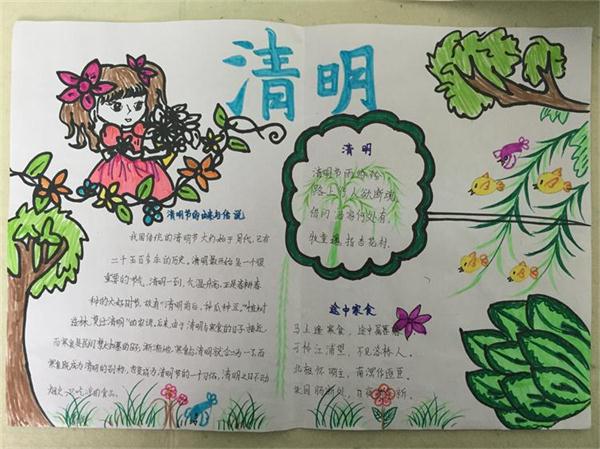 清明
清明节的由来与传说
我国传统的清明节大约始于周代,已有
二千五百多年的历史。清明最开始是一个很
重要的节气,清明一到,气温升高,正是春耕春
种的大好时节,故有“清明前后,种瓜种豆”。“植树
造林,莫过清明”的农谚。后来,由于清明与寒食的日子接近,
而寒食是民间禁火扫墓的日子,渐渐地,寒食与清明就合二为一了,而
寒食既成为清明的别称,也变成为清明节的一个习俗,清明之日不动
烟火,只吃凉的食品。
清明
清明时节雨纷纷,
路上行人欲断魂。
借问酒家何处有,
牧童遥指杏花村。
途中寒食
马上逢寒食,途中属暮春。
可怜江浦望,不见洛桥人。
北极怀明主,南溟作逐臣。
故园肠断处,日夜柳条新。